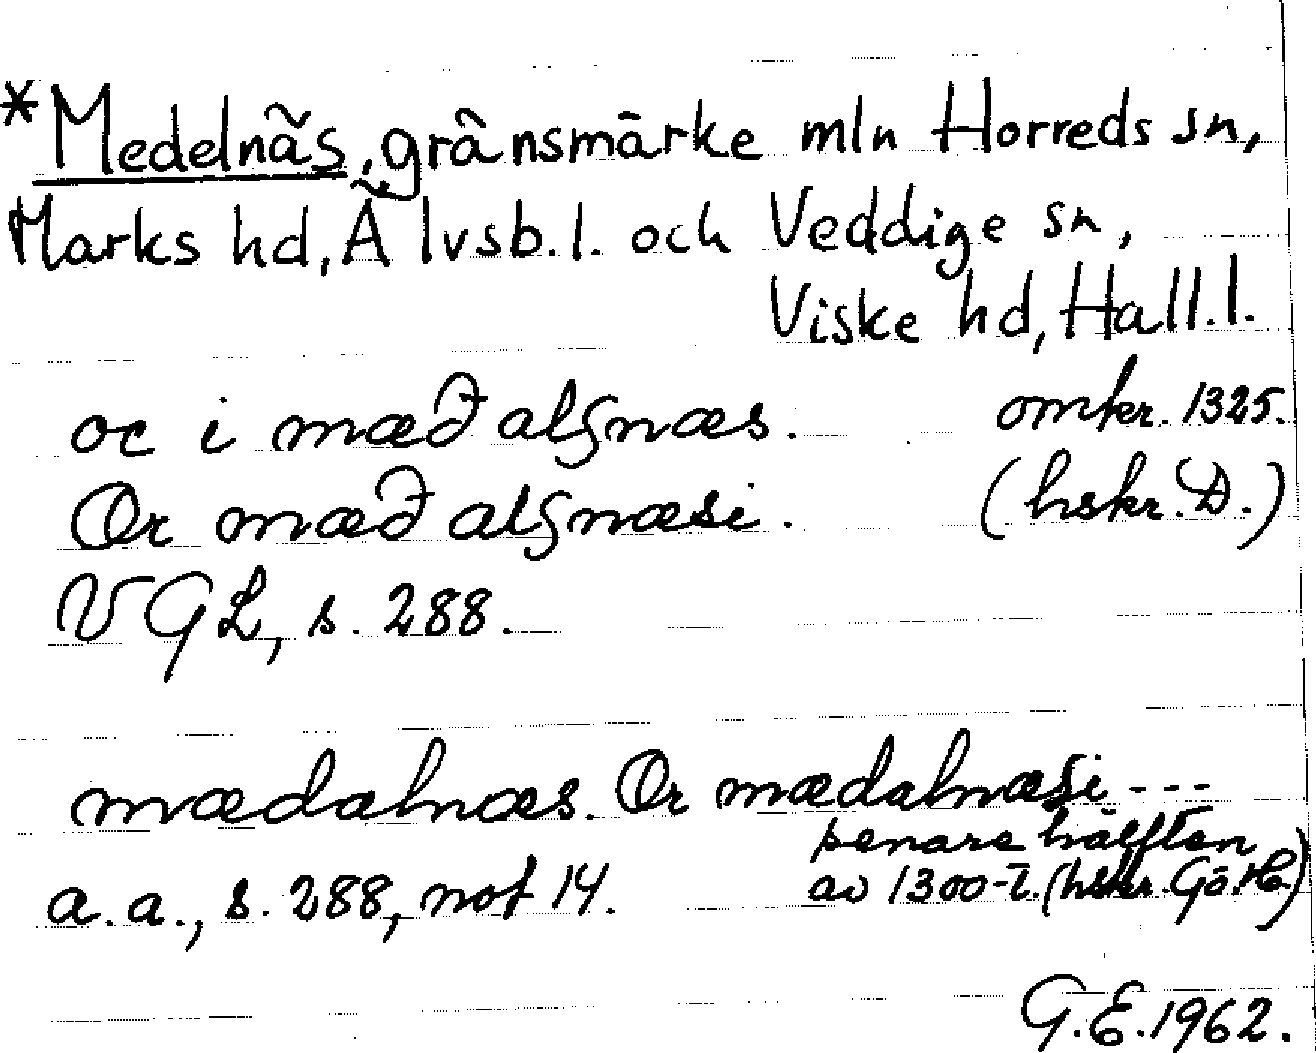 *Medelnäs, gränsmärke mln Horreds sn,
Marks hd, Älvsb. l. och Veddige sn,
Viske hd, Hall. l.
oc i mæð alſnæs. omkr. 1325.
Or mæð alſnæsi. (hskr. D.)
VGL, s. 288.
mædalnæs. Or mædalnæsi ---
senare hälften
a.a., s. 288, not 14. av 1300-t. (hskr. Göth.)
G.E. 1962.